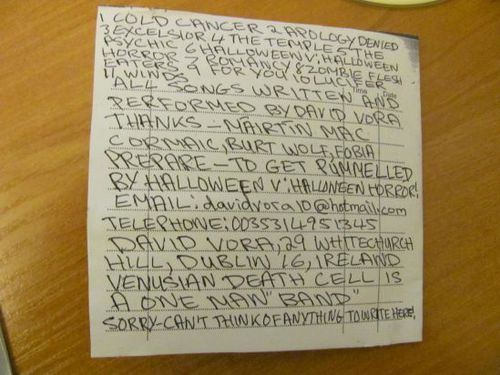 1 COLD CANCER 2 APOLOGY DENIED
3 EXCELSIOR 4 THE TEMPLE 5 THE
PSYCHIC 6 HALLOWEEN V: HALLOWEEN
HORROR 7 ROMANCY 8 ZOMBIE FLESH
EATERS 9 FOR YOU 10 LUCIFER
11 WINDS
Time Date
ALL SONGS WRITTEN AND
PERFORMED BY DAVID VORA
THANKS - MAIRTIN MAC
CORMAIC, BURT WOLF, FOBIA
PREPARE - TO GET PUMMELLED
BY HALLOWEEN V: HALLOWEEN HORROR!
EMAIL: davidvora10@hotmail.com
TELEPHONE: 0035314951345
DAVID VORA, 29 WHITECHURCH
HILL, DUBLIN 16, IRELAND
VENUSIAN DEATH CELL IS
A ONE MAN "BAND"
SORRY - CAN'T THINK OF ANYTHING TO WRITE HERE!